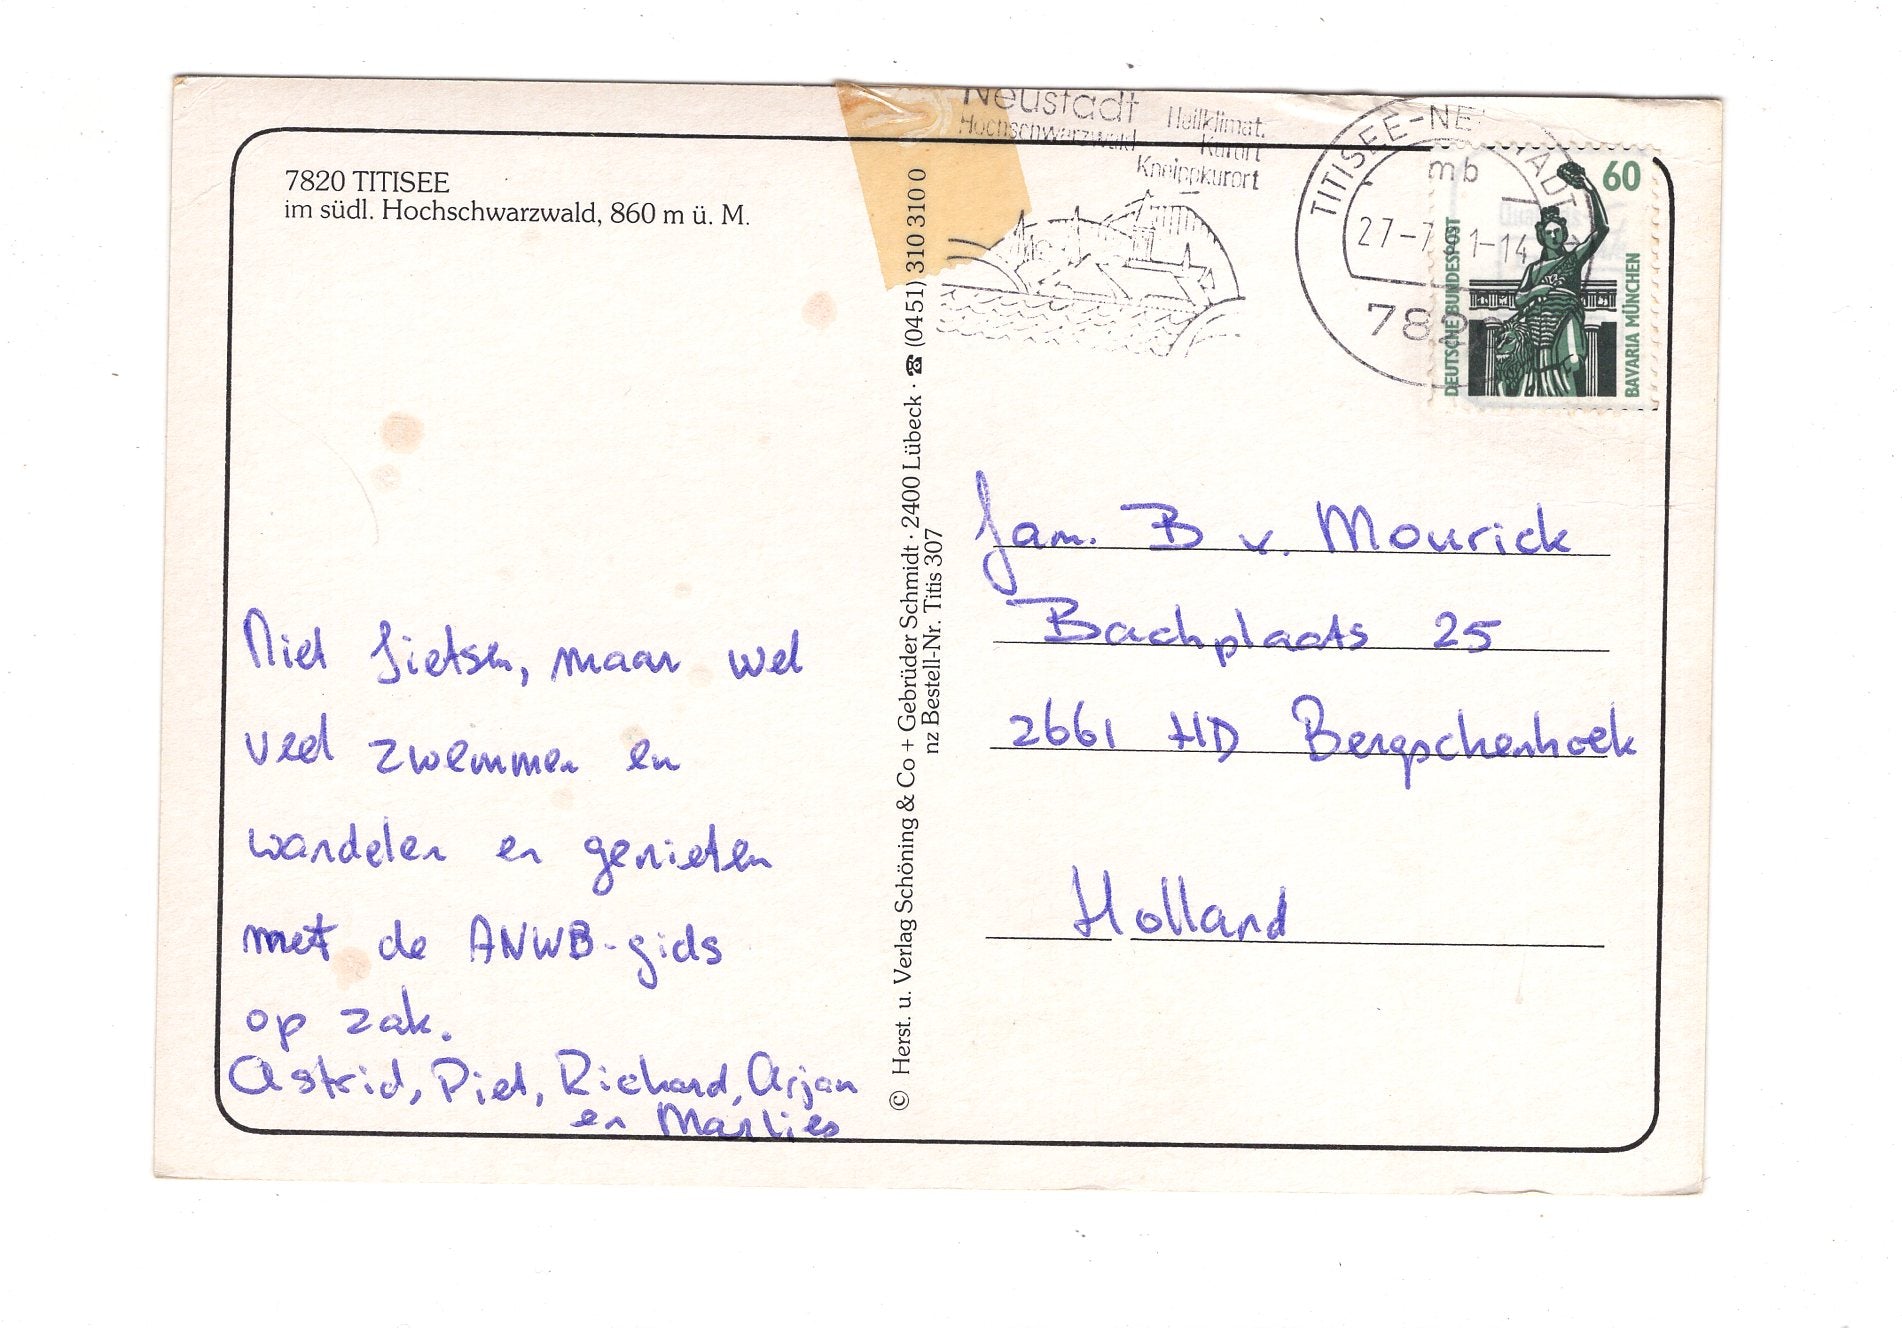 7820 TITISEE
im südl. Hochschwarzwald, 860 m ü. M.
Niet fietsen, maar wel
veel zwemmen en
wandelen en genieten
met de ANWB-gids
op zak.
Astrid, Piet, Richard, Arjan
en Marlies
© Herst. u. Verlag Schöning & Co + Gebrüder Schmidt · 2400 Lübeck · ☎ (0451) 310 310 0
nz Bestell-Nr. Titis 307
Neustadt
Hochschwarzwald
Heilklimat.
Kurort
Kneippkurort
TITISEE-NEUSTADT
mb
27-7
1-14
7820
60
DEUTSCHE BUNDESPOST
BAVARIA MÜNCHEN
fam. B v. Mourick
Bachplaats 25
2661 HD Bergschenhoek
Holland